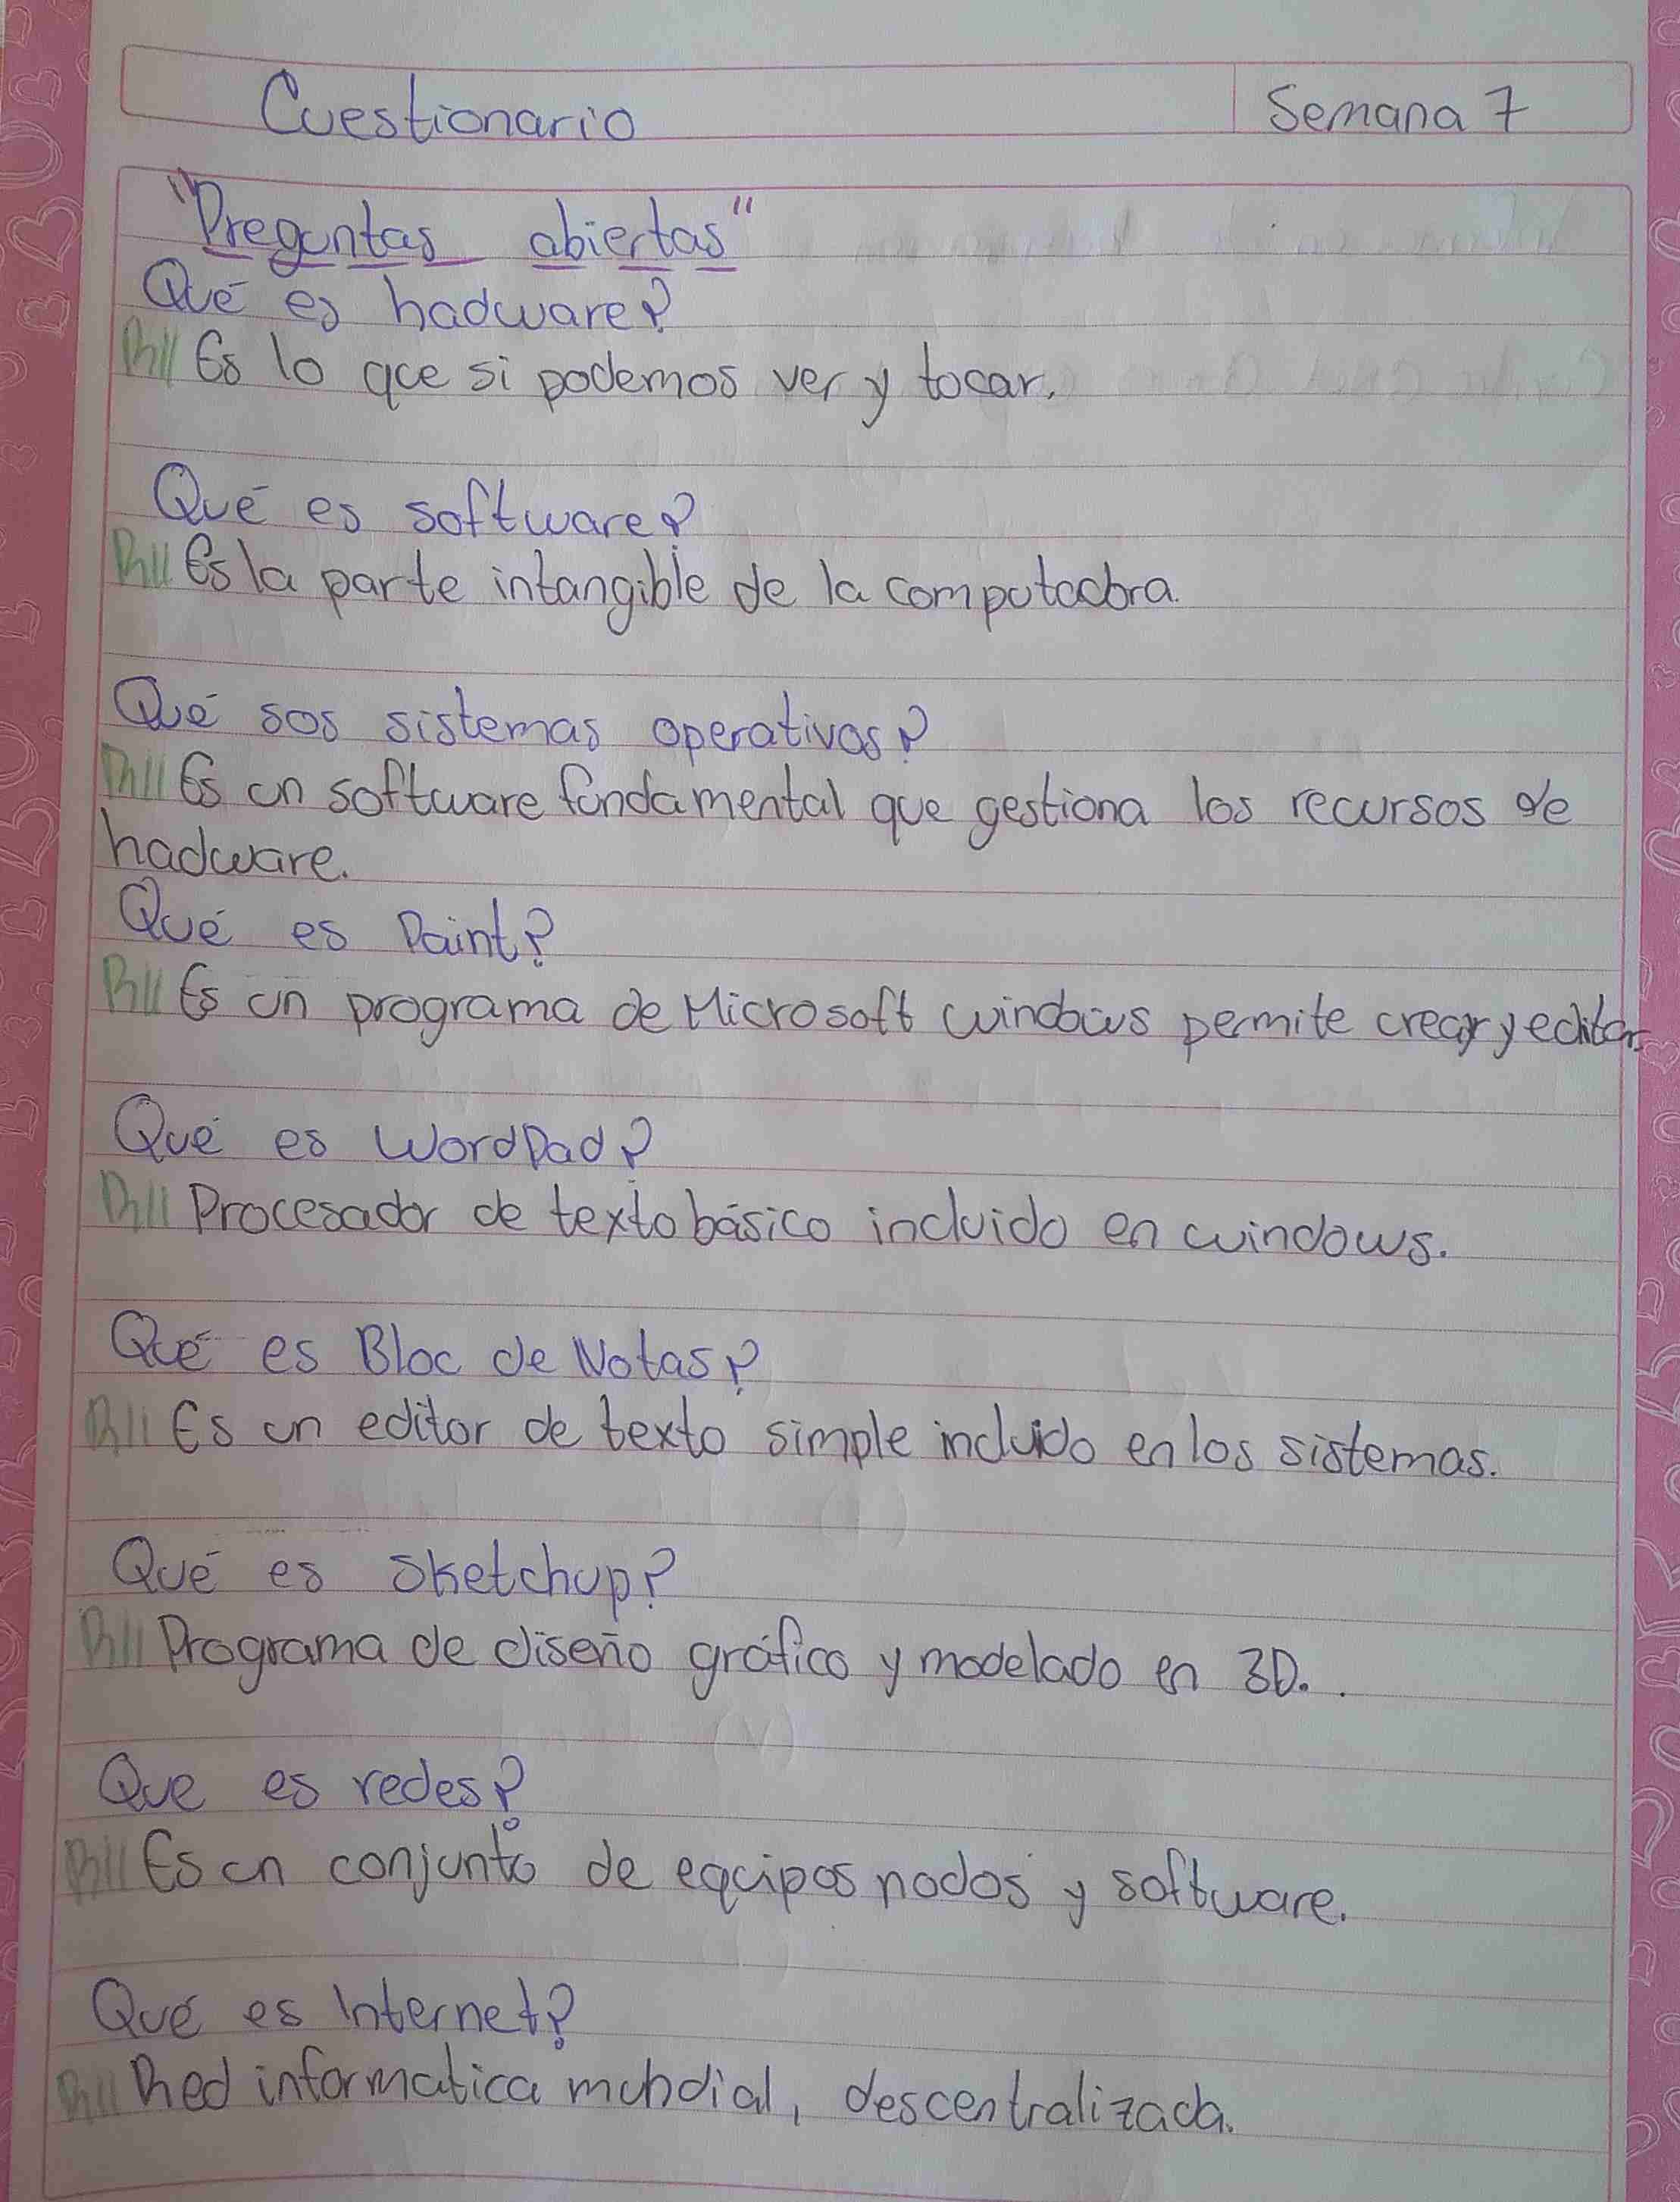 Cuestionario
Semana 7
"Preguntas abiertas"
Qué es hadware?
R// Es lo que si podemos ver y tocar.
Qué es software?
R// Es la parte intangible de la computadora.
Qué sos sistemas operativos?
R// Es un software fundamental que gestiona los recursos de
hadware.
Qué es Paint?
R// Es un programa de Microsoft windows permite crear y editar.
Qué es WordPad?
R// Procesador de texto básico incluido en windows.
Qué es Bloc de Notas?
R// Es un editor de texto simple incluido en los sistemas.
Qué es Sketchup?
R// Programa de diseño gráfico y modelado en 3D..
Que es redes?
R// Es un conjunto de equipos nodos y software.
Qué es Internet?
R// Red informatica mundial, descentralizada.